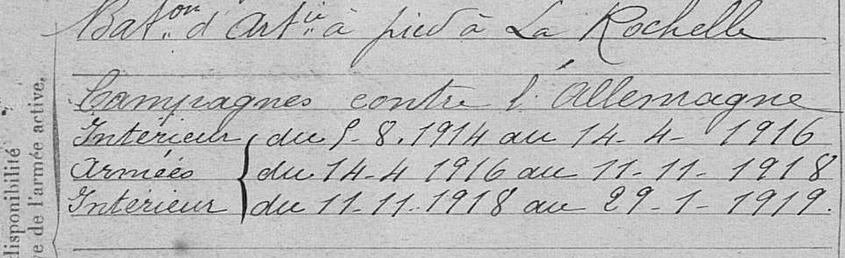 Bat.on d'Art.ie à pied à La Rochelle
Campagnes contre l'Allemagne
Intérieur du 5-8.1914 au 14-4-1916
Armées du 14-4 1916 au 11-11-1918
Intérieur du 11-11-1918 au 29-1-1919.
disponibilité
ve de l'armée active.